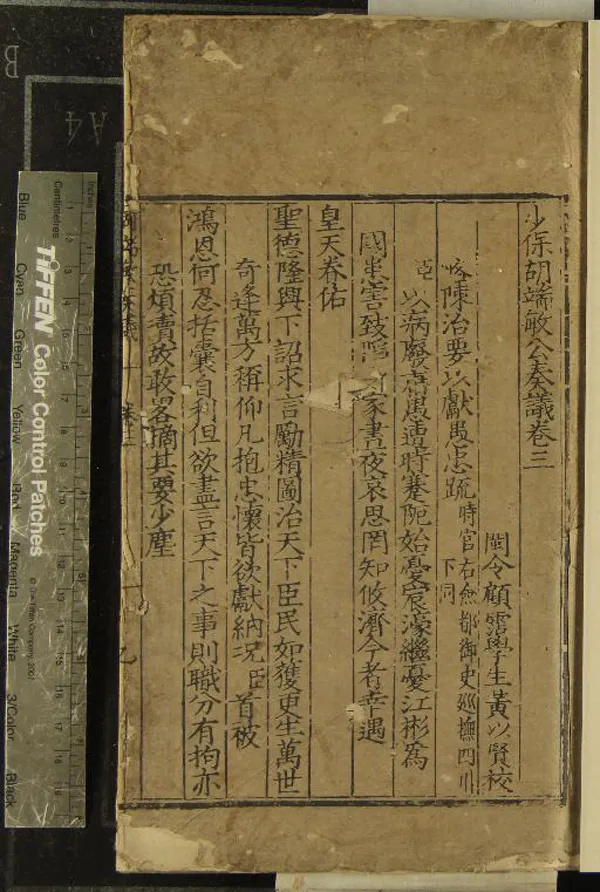 少保胡端敏公奏議卷三
閩令顧霑學生黃以賢校
陳治要以獻愚忠疏時官右僉都御史廵撫四川下同
臣以病廢蠢愚遭時蹇阨始憂宸濠繼憂江彬為
國患害致 家晝夜哀思罔知攸濟今者幸遇
皇天眷佑
聖德隆興下詔求言勵精圖治天下臣民如獲更生萬世
奇逢萬方稱仰凡抱忠懷皆欲獻納況臣首被
鴻恩何忍括囊自利但欲盡言天下之事則職分有拘亦
恐煩瀆故敢畧摘其要少塵
奏議 卷三
九
Inches
Centimetres
TIFFEN Color Control Patches
© The Tiffen Company, 2007
Blue
Cyan
Green
Yellow
Red
Magenta
White
3/Color
Black
B
A4